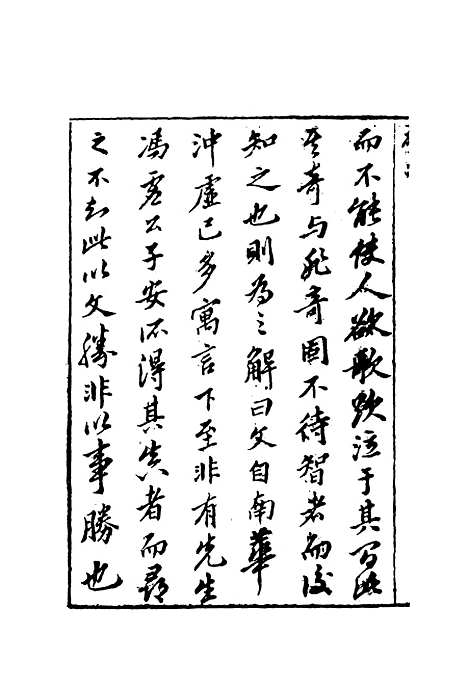 而不能使人欲歌欲泣于其間此
其奇与非奇固不待智者而後
知之也則為之解曰文自南華
沖虛已多寓言下至非有先生
馮虛公子安所得其真者而尋
之不知此以文勝非以事勝也